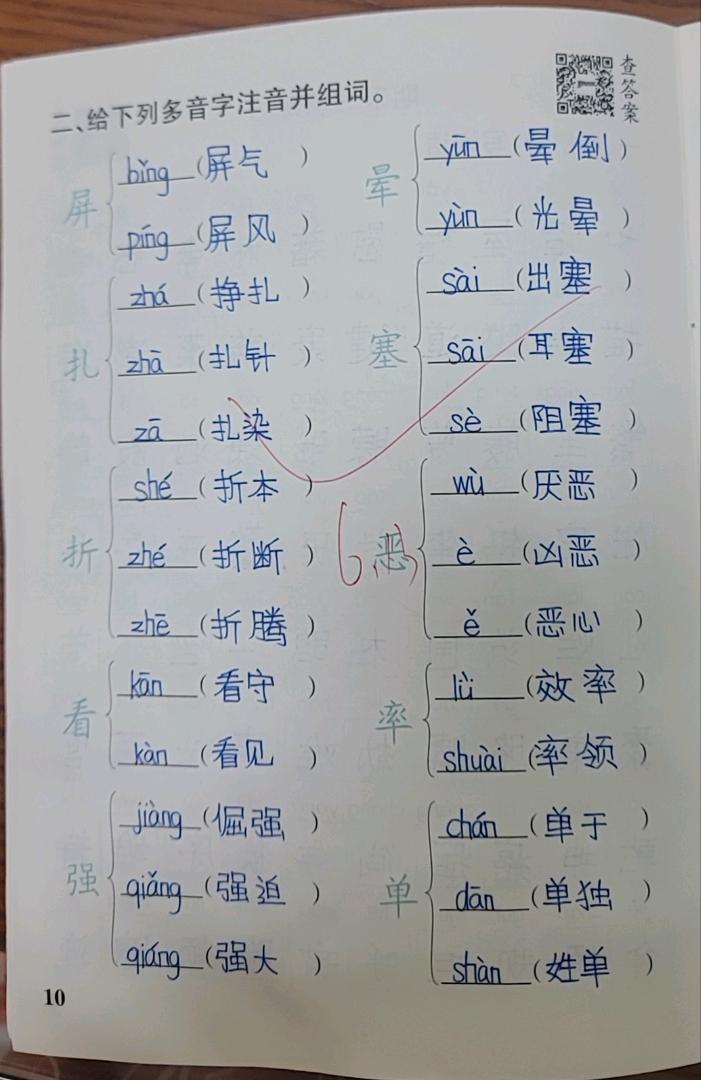 查答案
二、给下列多音字注音并组词。
屏
bǐng(屏气)
píng(屏风)
扎
zhá(挣扎)
zhā(扎针)
zā(扎染)
折
shé(折本)
zhé(折断)
zhē(折腾)
看
kān(看守)
kàn(看见)
强
jiàng(倔强)
qiǎng(强迫)
qiáng(强大)
晕
yūn(晕倒)
yùn(光晕)
塞
sài(出塞)
sāi(耳塞)
sè(阻塞)
恶
wù(厌恶)
è(凶恶)
ě(恶心)
率
lǜ(效率)
shuài(率领)
单
chán(单于)
dān(单独)
shàn(姓单)
10